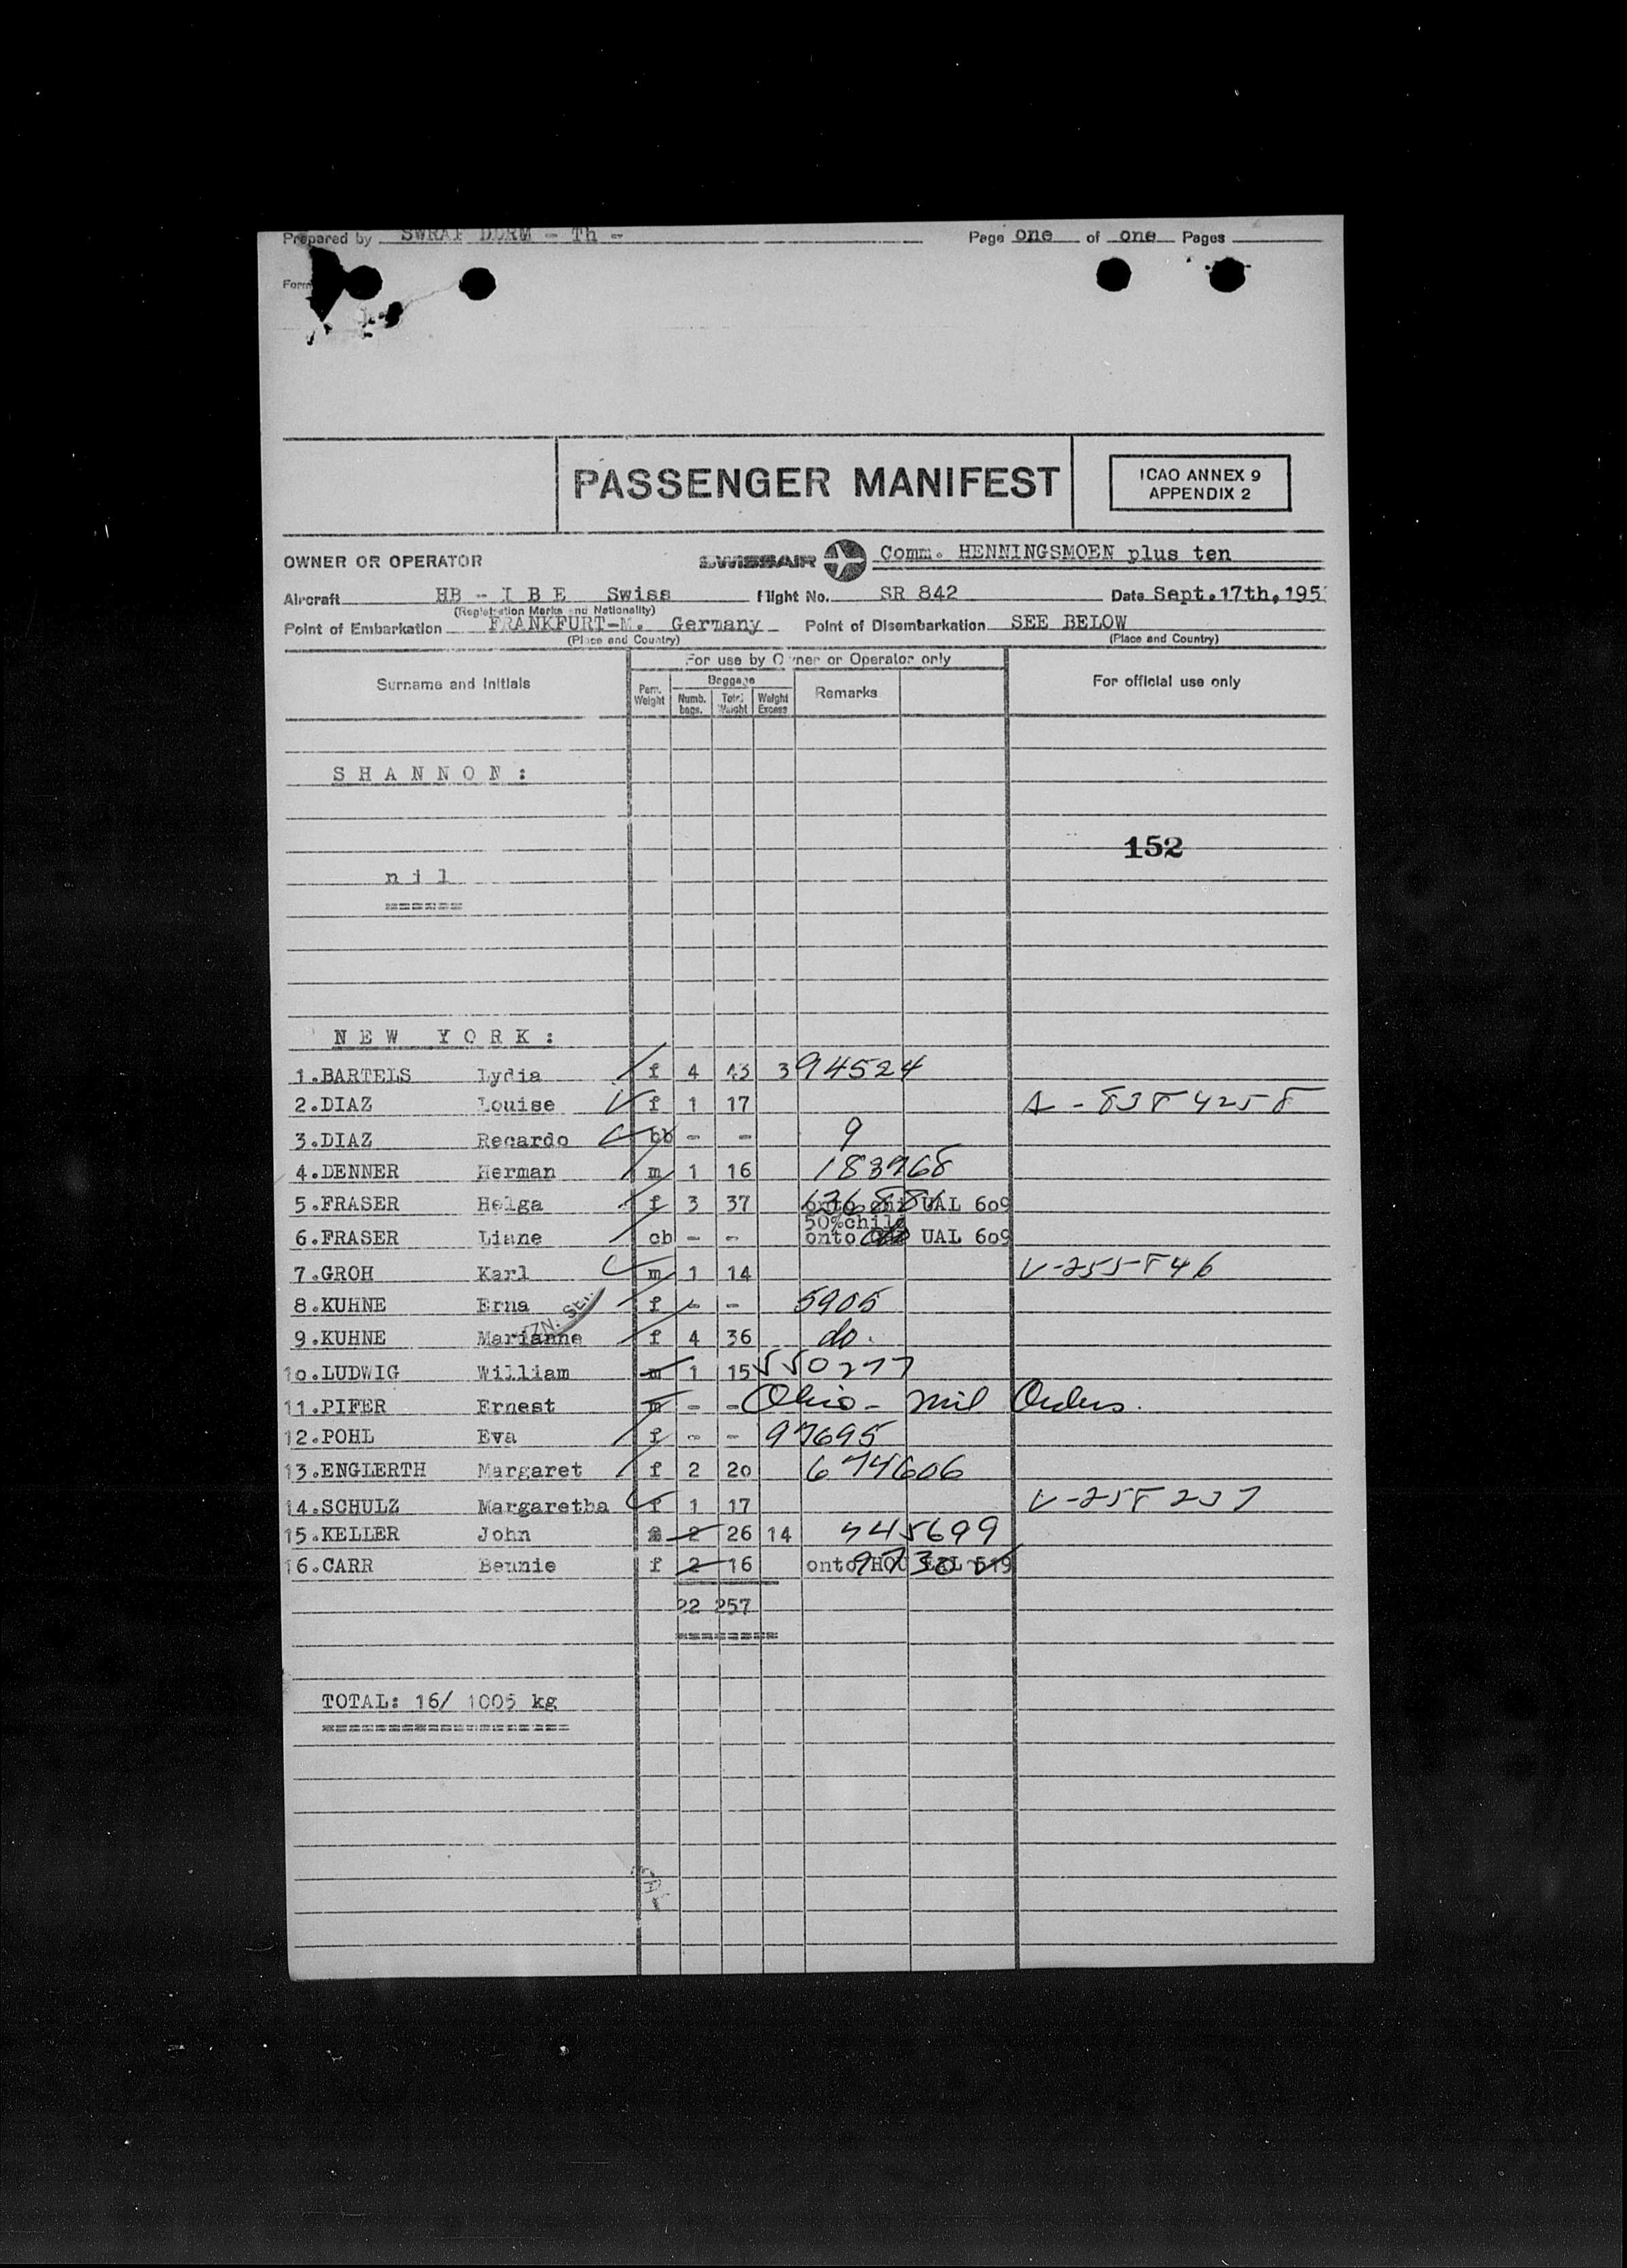 Prepared by SWRAF DLRM - Th - Page one of one Pages
Form
PASSENGER MANIFEST
ICAO ANNEX 9
APPENDIX 2
OWNER OR OPERATOR SWISSAIR Comm. HENNINGSMOEN plus ten
Aircraft HB - I B E Swiss Flight No. SR 842 Date Sept.17th,195
(Registration Marks and Nationality)
Point of Embarkation FRANKFURT-M. Germany Point of Disembarkation SEE BELOW
(Place and Country) (Place and Country)
For use by Owner or Operator only
Surname and Initials Pers. Weight Baggage Numb. bags. Total Weight Weight Excess Remarks For official use only
S H A N N O N :
152
n i l
======
N E W Y O R K :
1.BARTELS Lydia f 4 43 394524
2.DIAZ Louise f 1 17 A-8384258
3.DIAZ Recardo bb - - 9
4.DENNER Herman m 1 16 183968
5.FRASER Helga f 3 37 onto UAL 609
50%child
6.FRASER Liane cb - - onto UAL 609
7.GROH Karl m 1 14 V-255846
8.KUHNE Erna f - - 5905
9.KUHNE Marianne f 4 36 do.
10.LUDWIG William m 1 15 550277
11.PIFER Ernest m - - Ohio - Mil Orders.
12.POHL Eva f - - 97695
13.ENGLERTH Margaret f 2 20 674606
14.SCHULZ Margaretha f 1 17 V-258237
15.KELLER John 2 26 14 745699
16.CARR Bennie f 2 16 onto HOU EAL 519
22 257
========
TOTAL: 16/ 1005 kg
===================